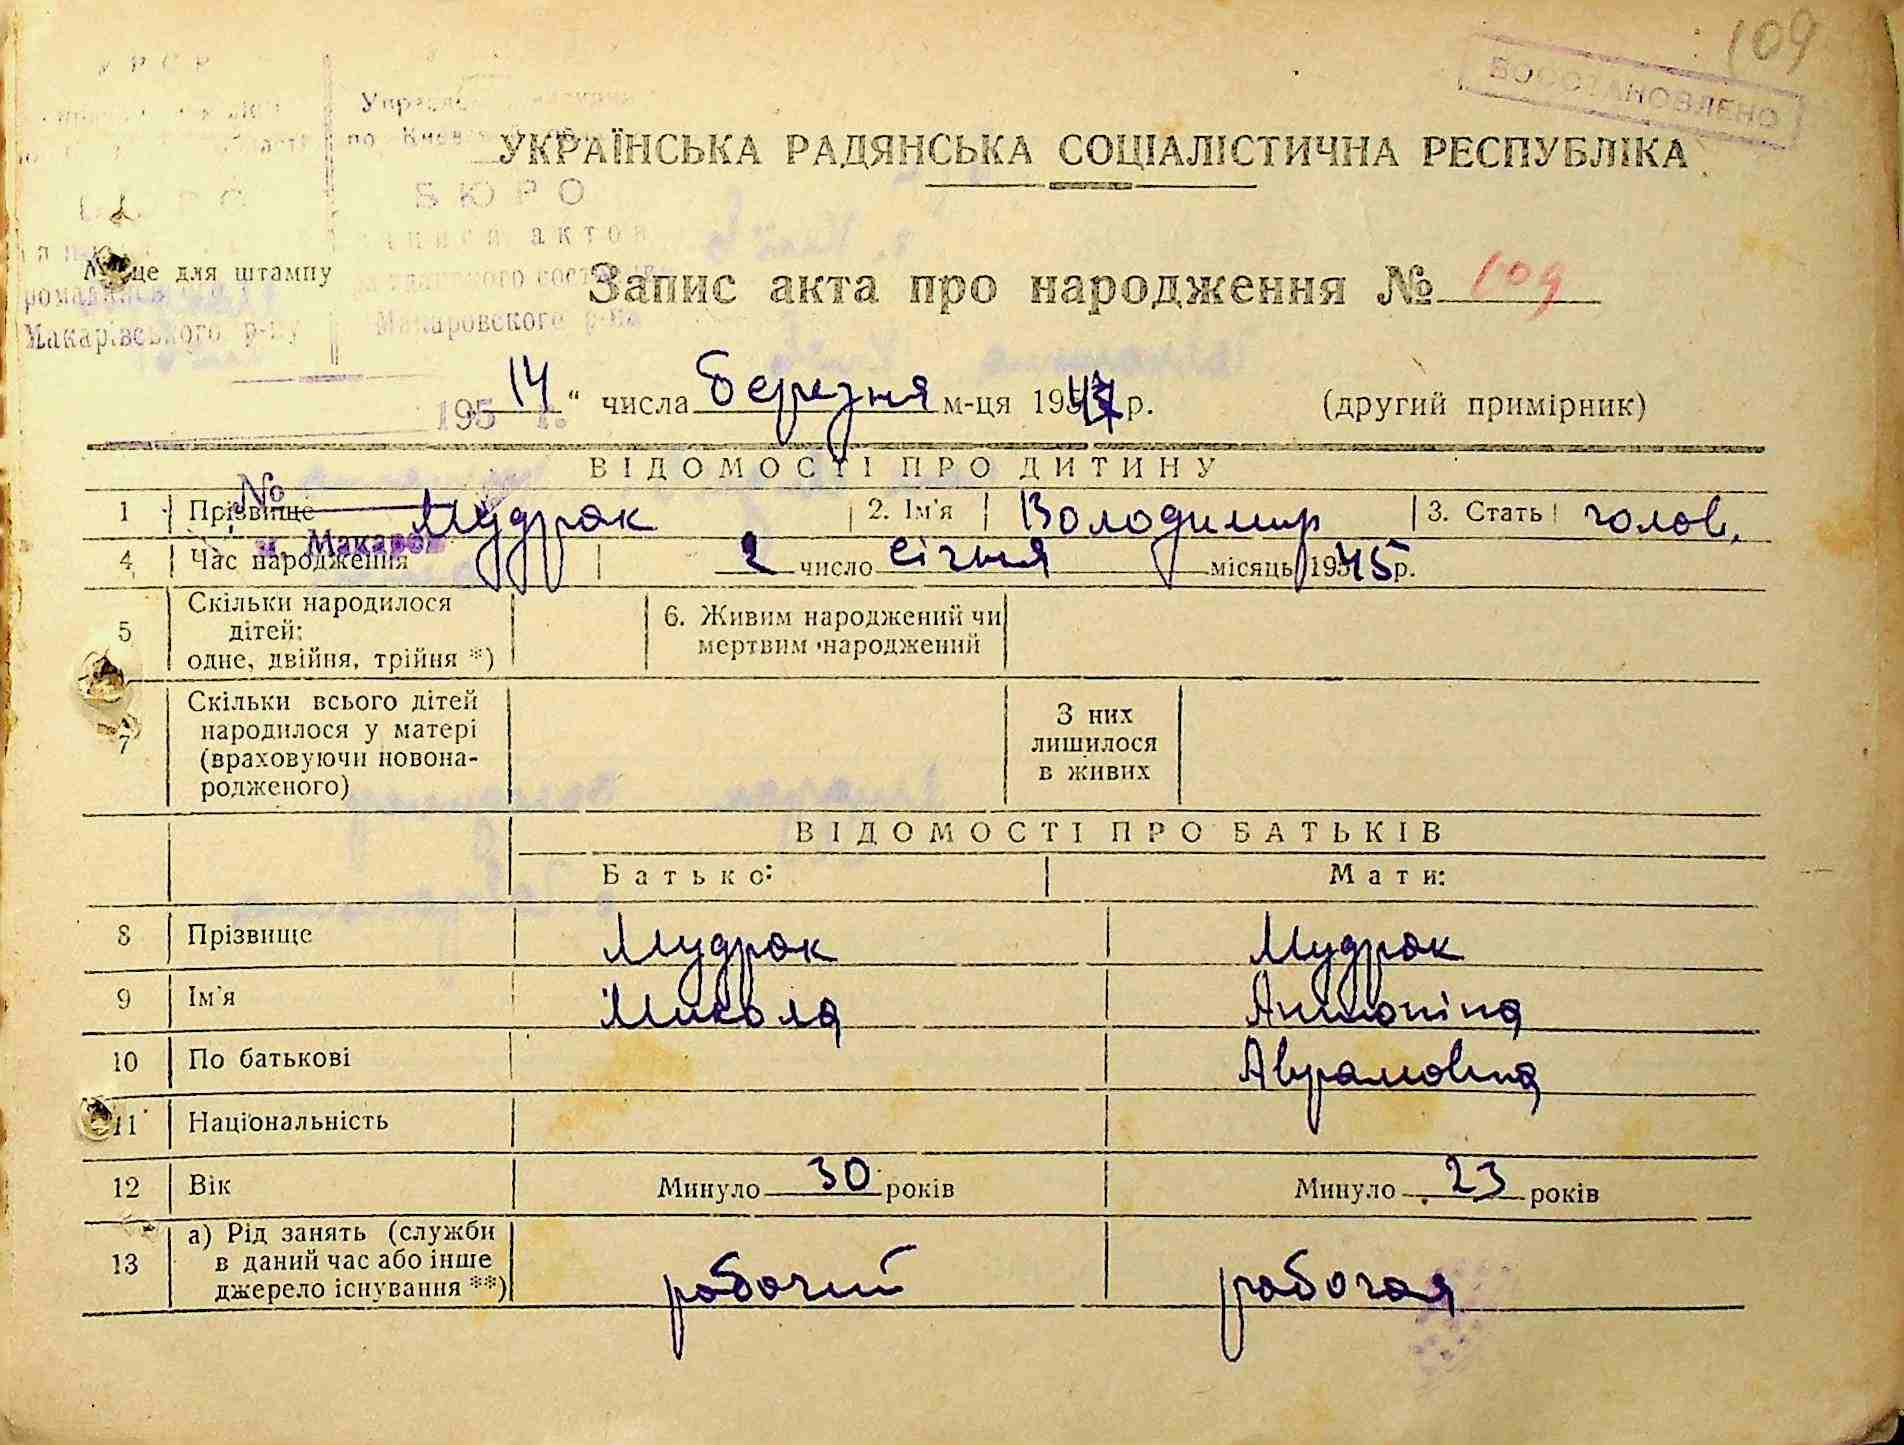 109
ВОССТАНОВЛЕНО
УРСР
Управле
по Киев
УКРАЇНСЬКА РАДЯНСЬКА СОЦІАЛІСТИЧНА РЕСПУБЛІКА
БЮРО
актов
Місце для штампу
Запис акта про народження № 109
Макарівського р-ну
Макаровского р-на
195 г.
14 " числа березня м-ця 1947 р. (другий примірник)
ВІДОМОСТІ ПРО ДИТИНУ
№
1 Прізвище Мудрак 2. Ім'я Володимир 3. Стать голов.
м. Макаров
4 Час народження 2 число січня місяць 1945 р.
5 Скільки народилося дітей: одне, двійня, трійня *) 6. Живим народжений чи мертвим народжений
7 Скільки всього дітей народилося у матері (враховуючи новонародженого) З них лишилося в живих
ВІДОМОСТІ ПРО БАТЬКІВ
Батько: Мати:
8 Прізвище Мудрак Мудрак
9 Ім'я Микола Антоніна
10 По батькові Аврамовна
11 Національність
12 Вік Минуло 30 років Минуло 23 років
13 а) Рід занять (служби в даний час або інше джерело існування **) робочий робочая